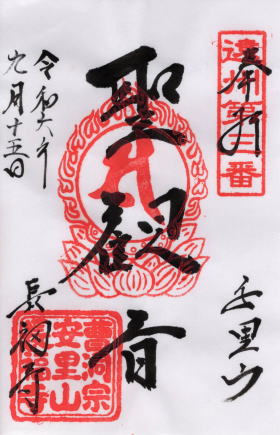 遠州第三番
奉拝
聖観音
安里山
長福寺
令和六年
九月十五日
曹洞宗
安里山
長福寺